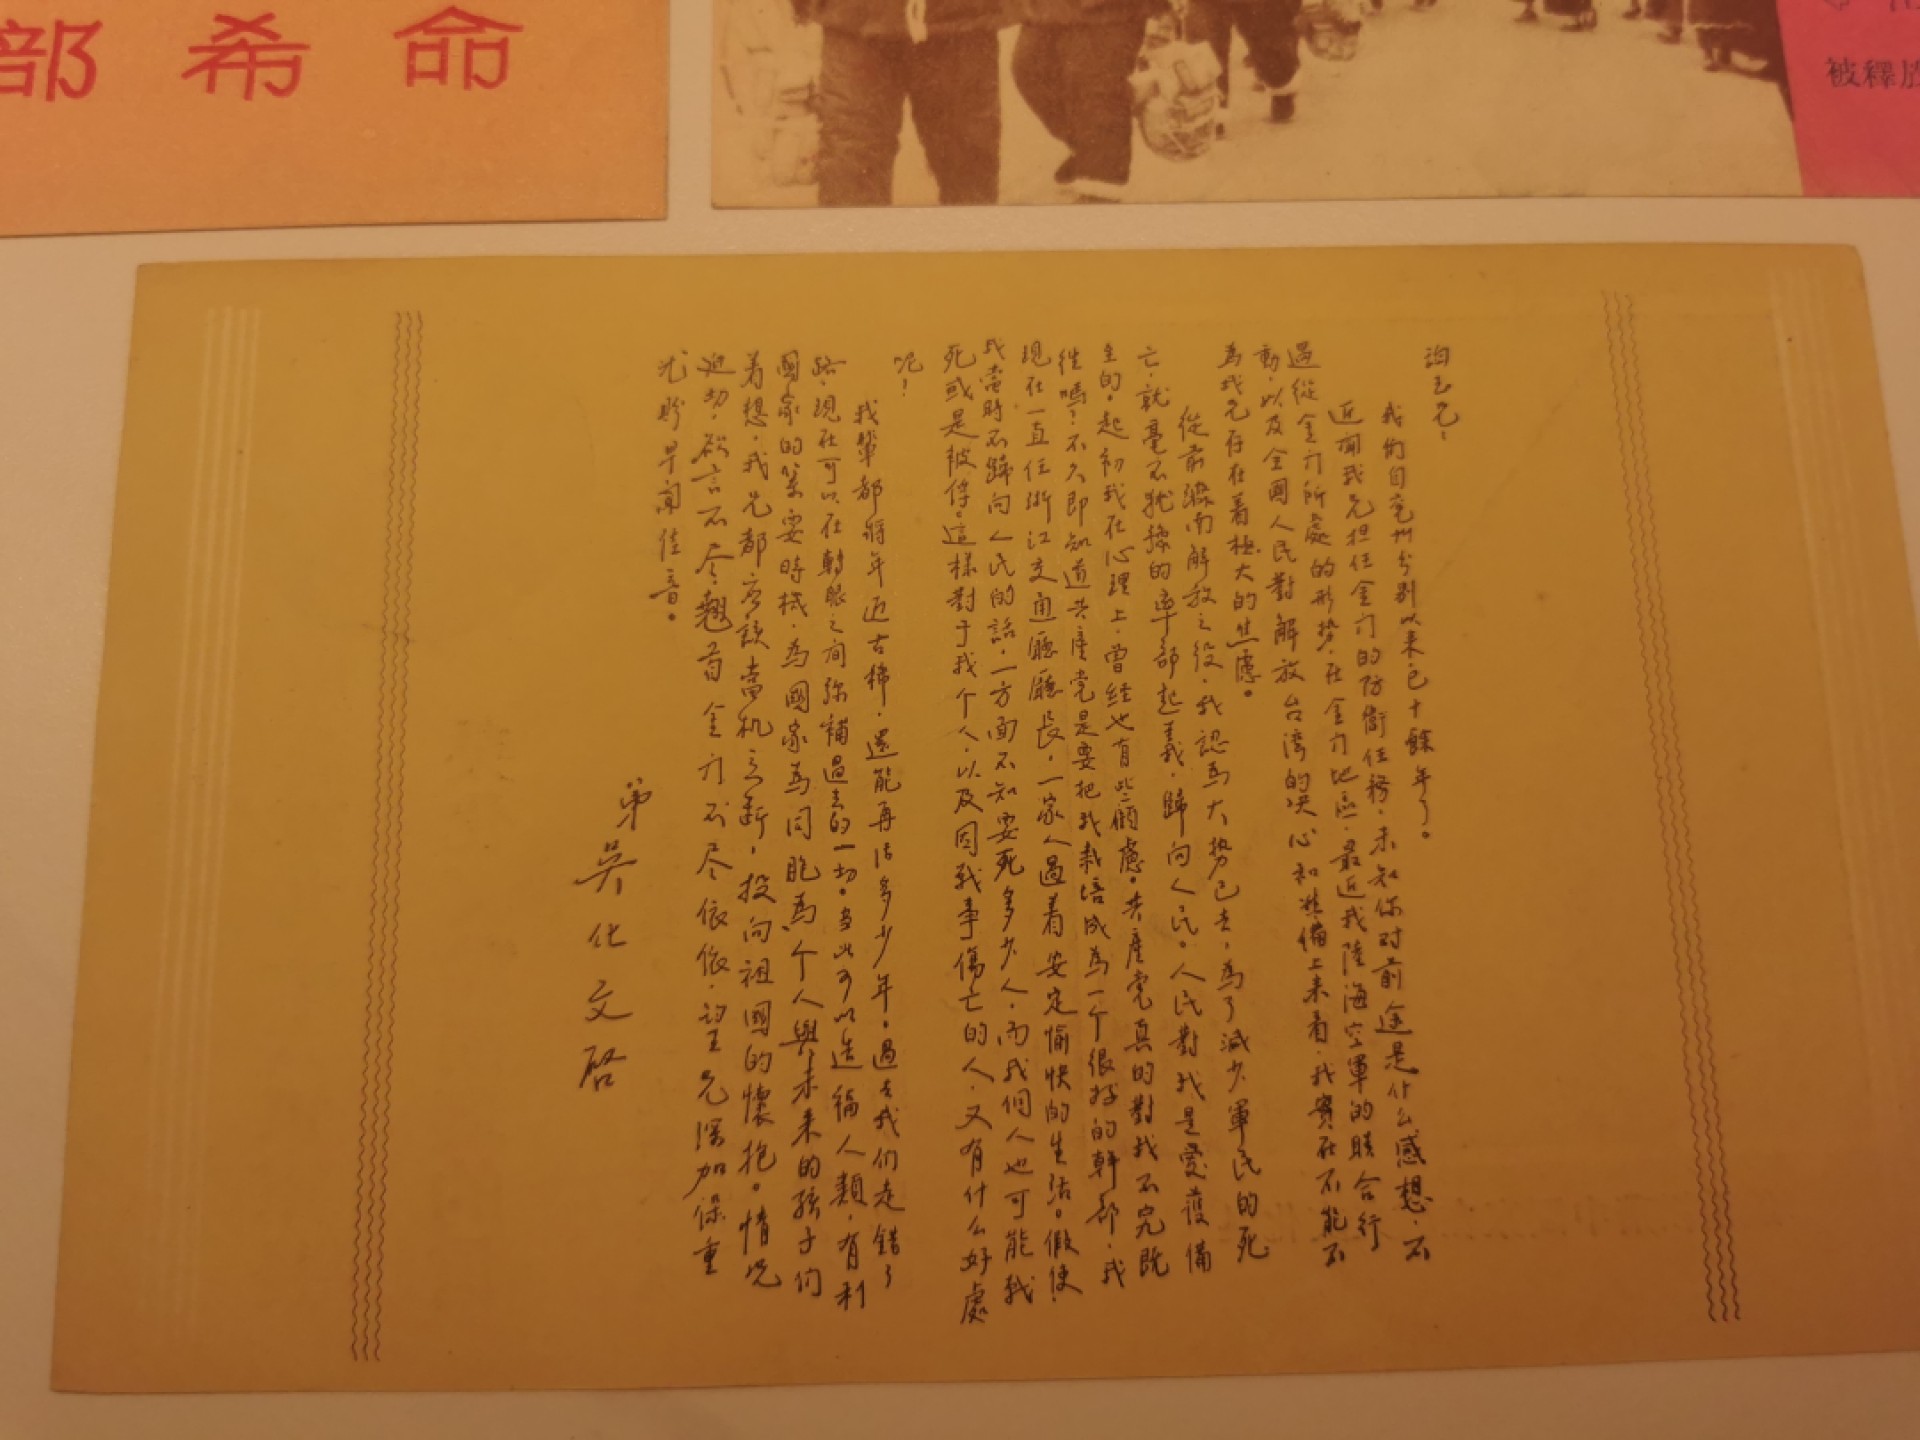 部希命
被釋放
泊玉兄：
我們自亳州分別以來，已十餘年了。
近聞我兄担任金门的防衛任務，未知你对前途是什么感想，不
過從金门所處的形势，在金门地區，最近我陸海空軍的联合行
動，以及全國人民對解放台湾的决心和準備上来看，我實在不能不
為我兄存在着極大的焦慮。
從前濟南解放之役，我認為大势已去，為了减少軍民的死
亡，就毫不犹豫的率部起義，歸向人民。人民對我是愛護備
至的。起初我在心理上，曾经也有些顧慮。共產党真的對我不究既
往嗎？不久即知道共產党是要把我栽培成為一个很好的幹部，我
現在一直任浙江交通廳廳長，一家人過着安定愉快的生活。假使
我當時不歸向人民的話，一方面不知要死多少人，而我個人也可能戰
死或是被俘。這樣對于我个人，以及因戰事傷亡的人，又有什么好處
呢！
我輩都將年近古稀，還能再活多少年。過去我们走錯了
路，現在可以在轉眼之间弥補過去的一切。当此可以造福人類，有利
國家的緊要時機，為國家為同胞為个人與未来的孩子们
着想，我兄都應該當机立断，投向祖國的懷抱。情况
迫切，欲言不尽，翹首金门不尽依依，望兄深加保重
尤盼早聞佳音。
弟吳化文啓